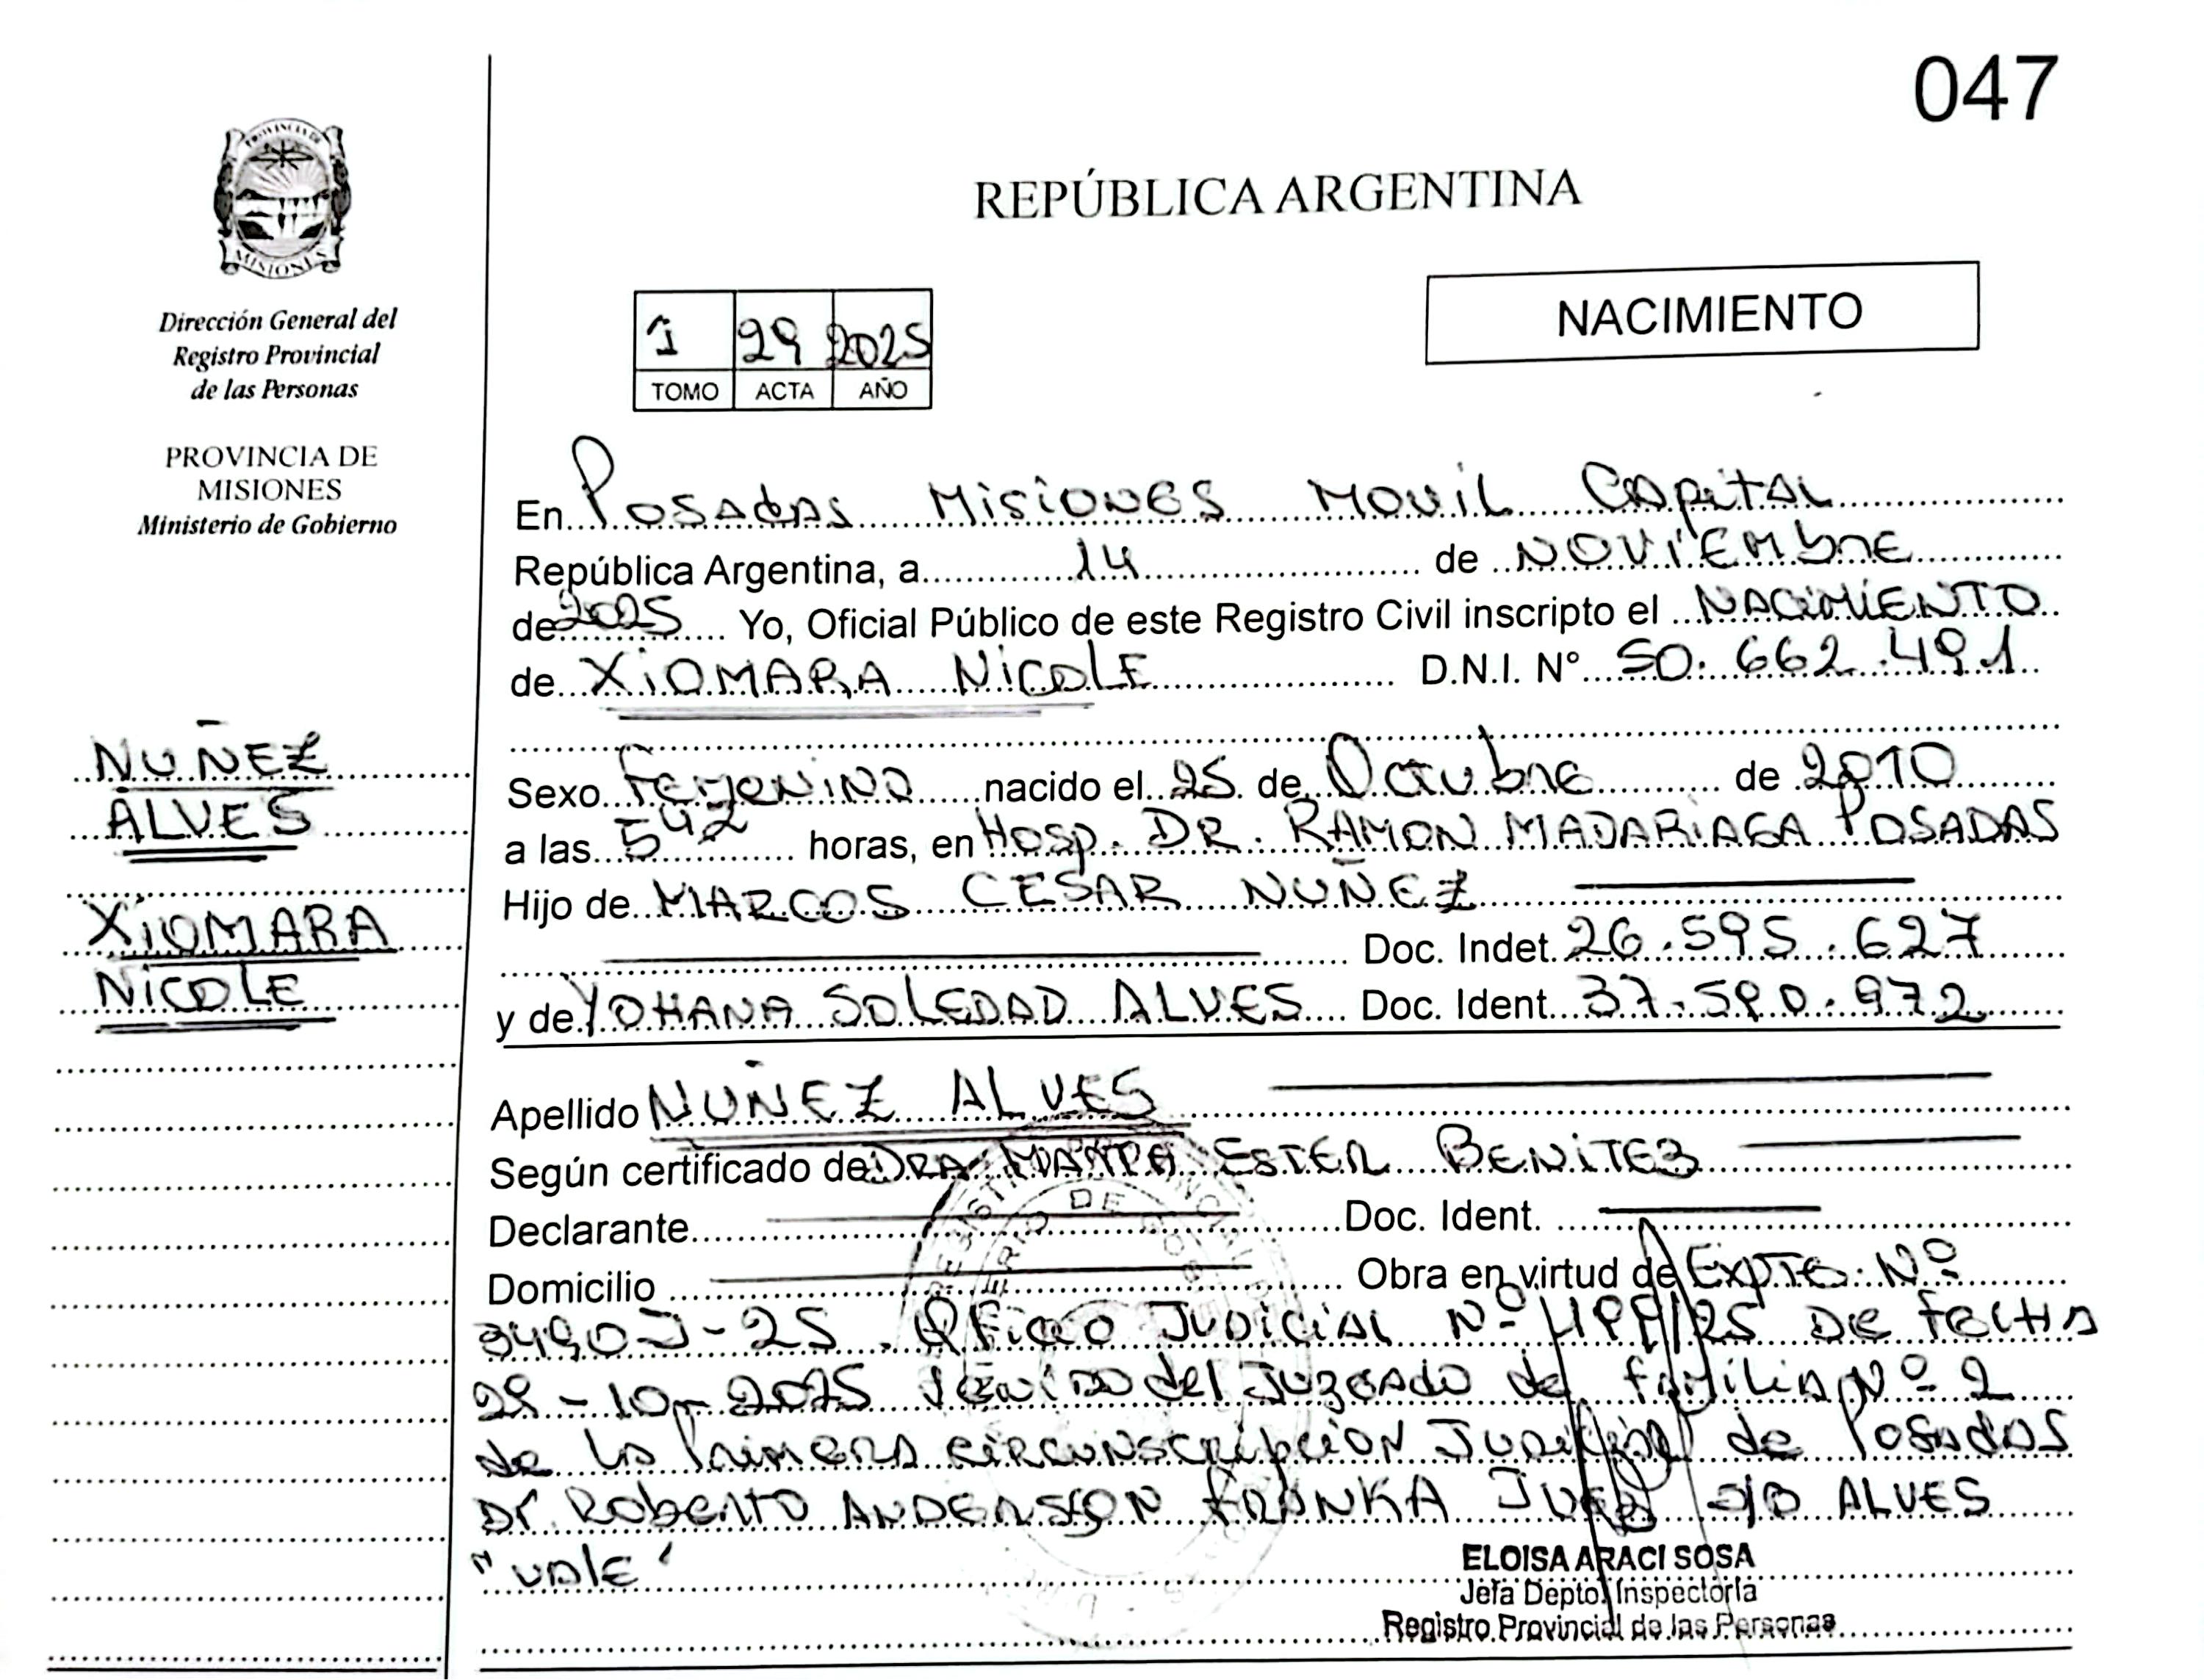 047
REPÚBLICA ARGENTINA
NACIMIENTO
PROVINCIA DE
MISIONES
Dirección General del
Registro Provincial
de las Personas
PROVINCIA DE
MISIONES
Ministerio de Gobierno
1 29 2025
TOMO ACTA AÑO
En Posadas Misiones Movil Capital
República Argentina, a 14 de NOVIEMbre
de 2025 Yo, Oficial Público de este Registro Civil inscripto el NACIMIENTO
de XIOMARA NICOLE D.N.I. N° 50.662.491
Sexo Femenino nacido el 25 de Octubre de 2010
a las 5 42 horas, en Hosp. DR. RAMON MADARIAGA POSADAS
Hijo de MARCOS CESAR NUÑEZ
Doc. Indet. 26.595.627
y de YOHANA SOLEDAD ALVES Doc. Ident. 37.590.972
NUÑEZ
ALVES
XIOMARA
NICOLE
Apellido NUÑEZ ALVES
Según certificado de DRA MARTA ESTER BENITEZ
Declarante Doc. Ident.
Domicilio Obra en virtud de EXPTE Nº
3490J-25. Oficio JUDICIAL Nº 499/25 DE fecha
29-10-2025 del Juzgado de familia Nº 2
de la Primera circunscripcion Judicial de Posadas
Dr. Roberto ANDERSSON FRANKA Juez S/D ALVES
"Vale"
ELOISA ARACI SOSA
Jefa Depto. Inspectoría
Registro Provincial de las Personas